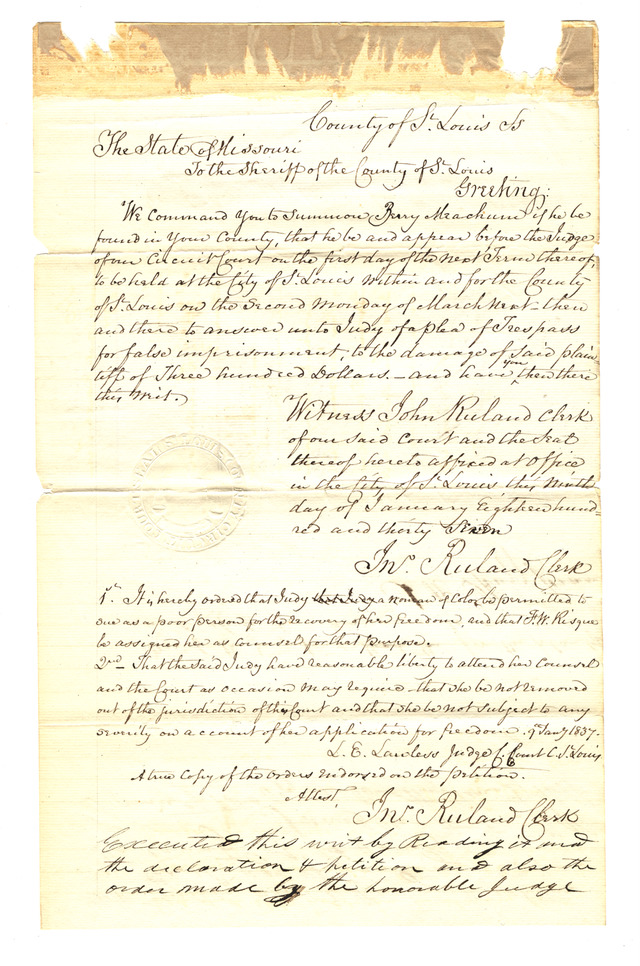 County of St. Louis Ss
The State of Missouri
To the Sheriff of the County of St. Louis
Greeting:
We Command You to Summon Berry Meachum if he be
found in Your County, that he be and appear before the Judge
of our Circuit Court on the first day of the next Term thereof,
to be held at the City of St. Louis within and for the County
of St. Louis on the Second Monday of March next - then
and there to answer unto Judy of a plea of Trespass
for false imprisonment, to the damage of said plain
tiff of Three hundred Dollars. - and have you then there
this writ.
Witness John Ruland Clerk
of our said Court and the Seal
thereof hereto affixed at Office
in the City of St. Louis this Ninth
day of January Eighteen hund=
red and thirty Seven
Jno. Ruland Clerk
1st. It is hereby ordered that Judy a woman of Color be permitted to
sue as a poor person for the recovery of her freedom, and that F. W. Risque
be assigned her as counsel for that purpose.
2nd - That the said Judy have reasonable liberty to attend her Counsel
and the Court as occasion may require, that she be not removed
out of the jurisdiction of this Court and that she be not subject to any
severity on account of her application for freedom. 9th Jany 1837.
L. E. Lawless Judge C. Court C. St. Louis
A true Copy of the orders endorsed on the petition.
Attest,
Jno. Ruland Clerk
Executed this writ by Reading it and
the declaration & petition and also the
order made by the honorable Judge